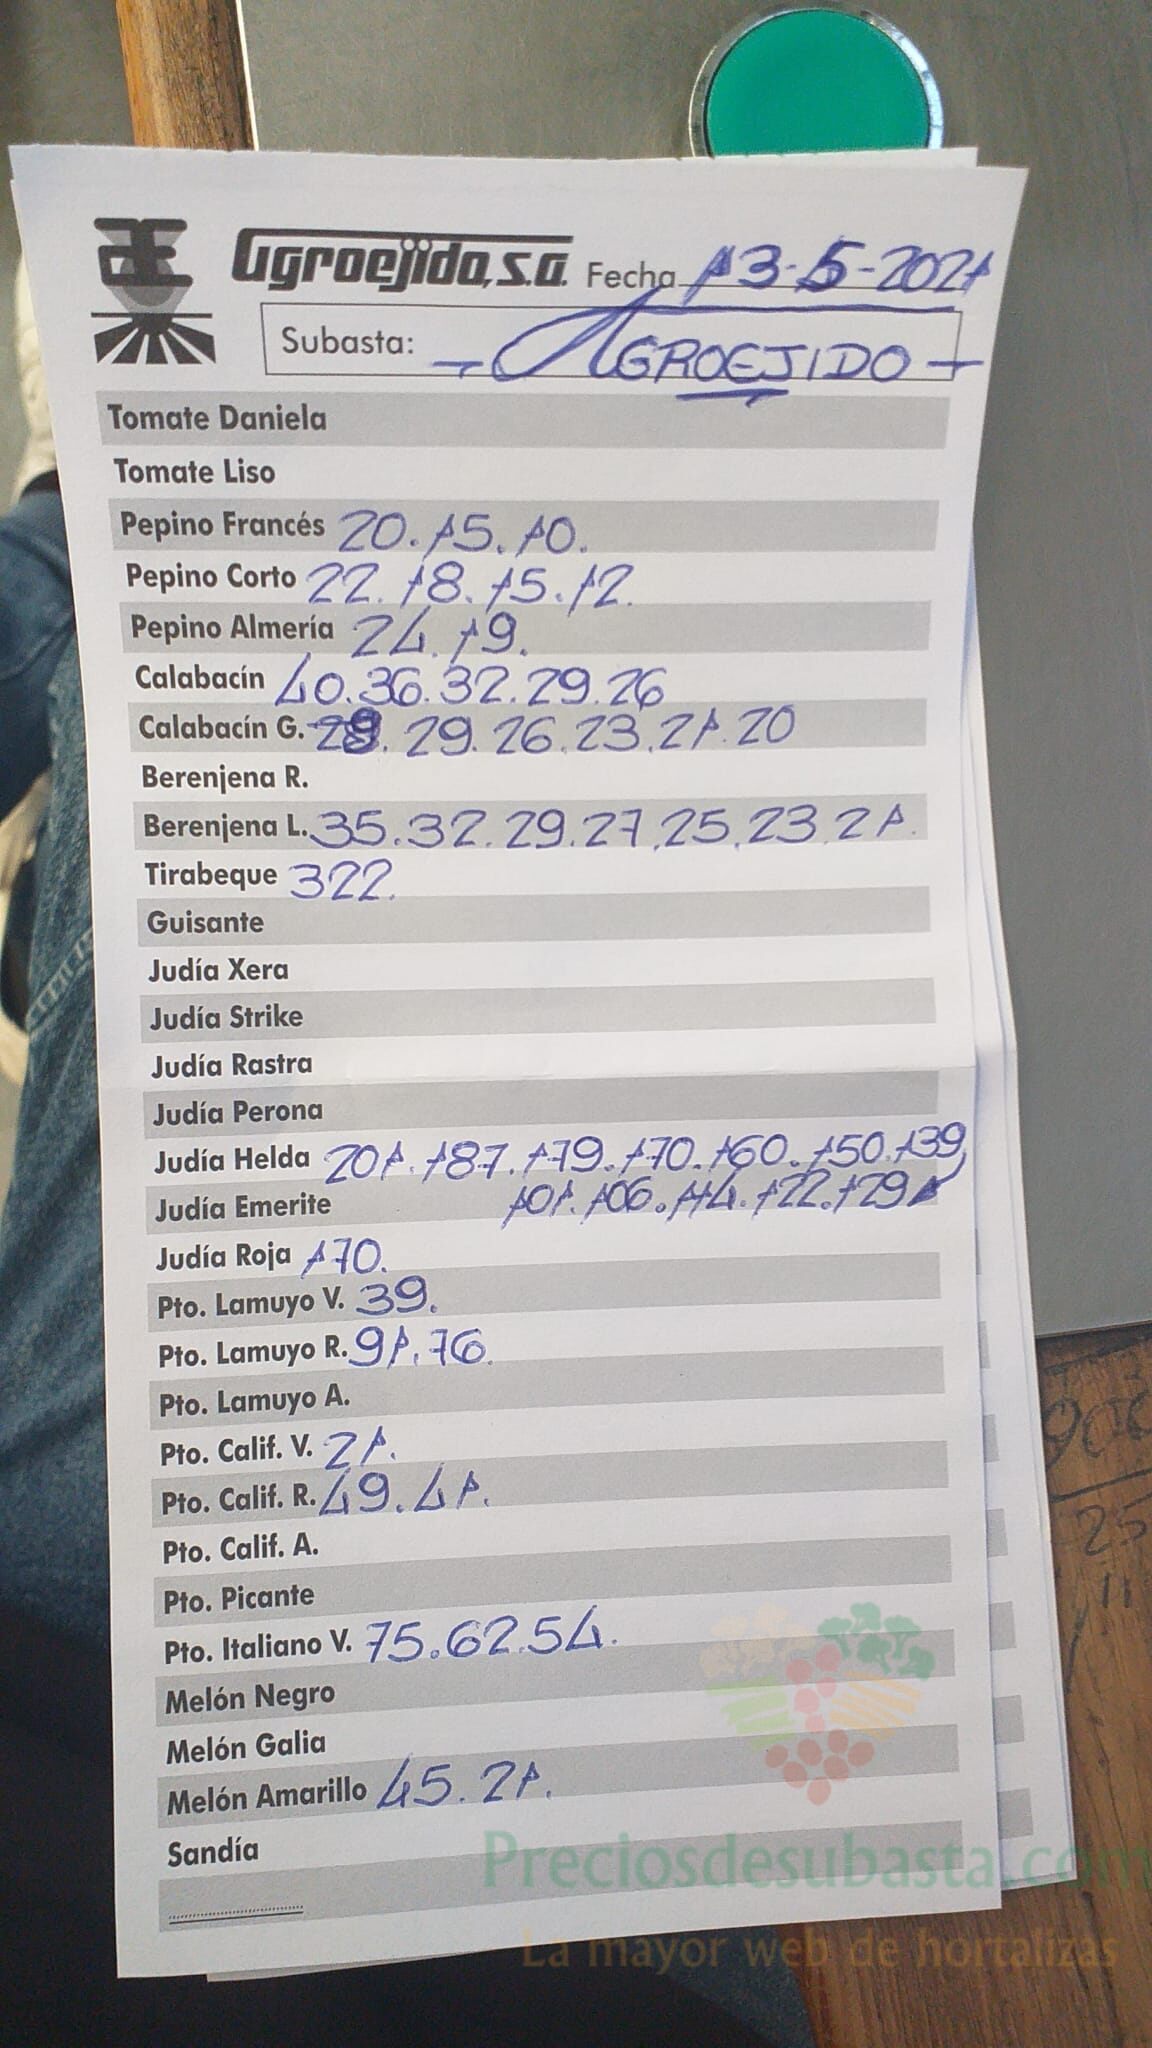 Agroejido, S.A. Fecha 13-5-2021
Subasta: - AGROEJIDO -
Tomate Daniela
Tomate Liso
Pepino Francés 20. 15. 10.
Pepino Corto 22. 18. 15. 12.
Pepino Almería 24. 19.
Calabacín 40. 36. 32. 29. 26
Calabacín G. 29. 26. 23. 21. 20
Berenjena R.
Berenjena L. 35. 32. 29. 27. 25. 23. 21.
Tirabeque 322.
Guisante
Judía Xera
Judía Strike
Judía Rastra
Judía Perona
Judía Helda 201. 187. 179. 170. 160. 150. 139
Judía Emerite 101. 106. 114. 122. 129
Judía Roja 170.
Pto. Lamuyo V. 39.
Pto. Lamuyo R. 91. 76.
Pto. Lamuyo A.
Pto. Calif. V. 21.
Pto. Calif. R. 49. 41.
Pto. Calif. A.
Pto. Picante
Pto. Italiano V. 75. 62. 54.
Melón Negro
Melón Galia
Melón Amarillo 45. 21.
Sandía
Preciosdesubasta.com
La mayor web de hortalizas
25